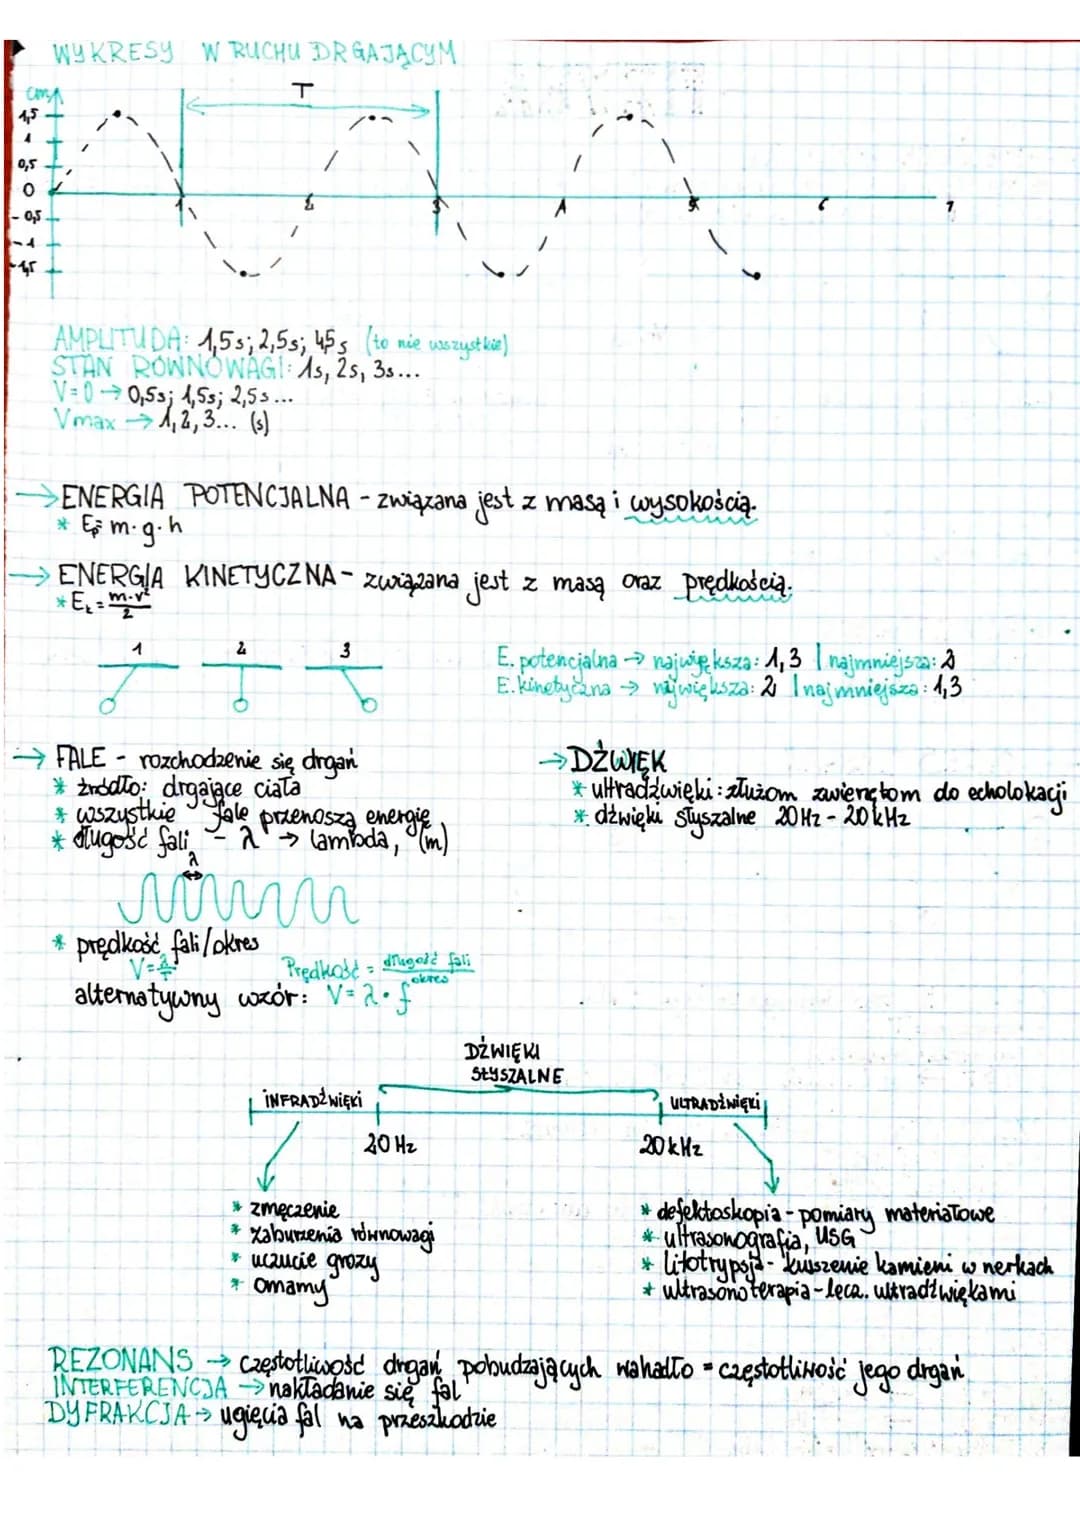 WYKRESY W RUCHU DRGAJĄCYM
cm
T
1,5
1
0,5
0
-0,5
-1
-1,5
1 2 3 4 5 6 7
AMPLITUDA: 1,5s; 2,5s; 4,5s (to nie wszystkie)
STAN RÓWNOWAGI: 1s, 2s, 3s...
V=0 → 0,5s; 1,5s; 2,5s...
Vmax → 1, 2, 3... (s)
→ ENERGIA POTENCJALNA - związana jest z masą i wysokością.
* Ep= m·g·h
→ ENERGIA KINETYCZNA - związana jest z masą oraz prędkością.
* Ek = m·v²/2
1 2 3
E. potencjalna → największa: 1,3 | najmniejsza: 2
E. kinetyczna → największa: 2 | najmniejsza: 1,3
→ FALE - rozchodzenie się drgań
* źródło: drgające ciała
* wszystkie fale przenoszą energię
* długość fali - λ → lambda, (m)
λ
* prędkość fali/okres
V=λ/T
Prędkość = długość fali/okres
alternatywny wzór: V= λ·f
→ DŹWIĘK
* ultradźwięki: służom zwierętom do echolokacji
* dźwięki słyszalne 20Hz - 20kHz
DŹWIĘKI
SŁYSZALNE
INFRADŹWIĘKI
ULTRADŹWIĘKI
20 Hz
20 kHz
* zmęczenie
* zaburzenia równowagi
* uczucie grozy
* omamy
* defektoskopia - pomiary materiałowe
* ultrasonografia, USG
* litotrypsja - kruszenie kamieni w nerkach
* ultrasonoterapia - lecz. ultradźwiękami
REZONANS → częstotliwość drgań pobudzających wahadło = częstotliwość jego drgań
INTERFERENCJA → nakładanie się fal
DYFRAKCJA → ugięcia fal na przeszkodzie